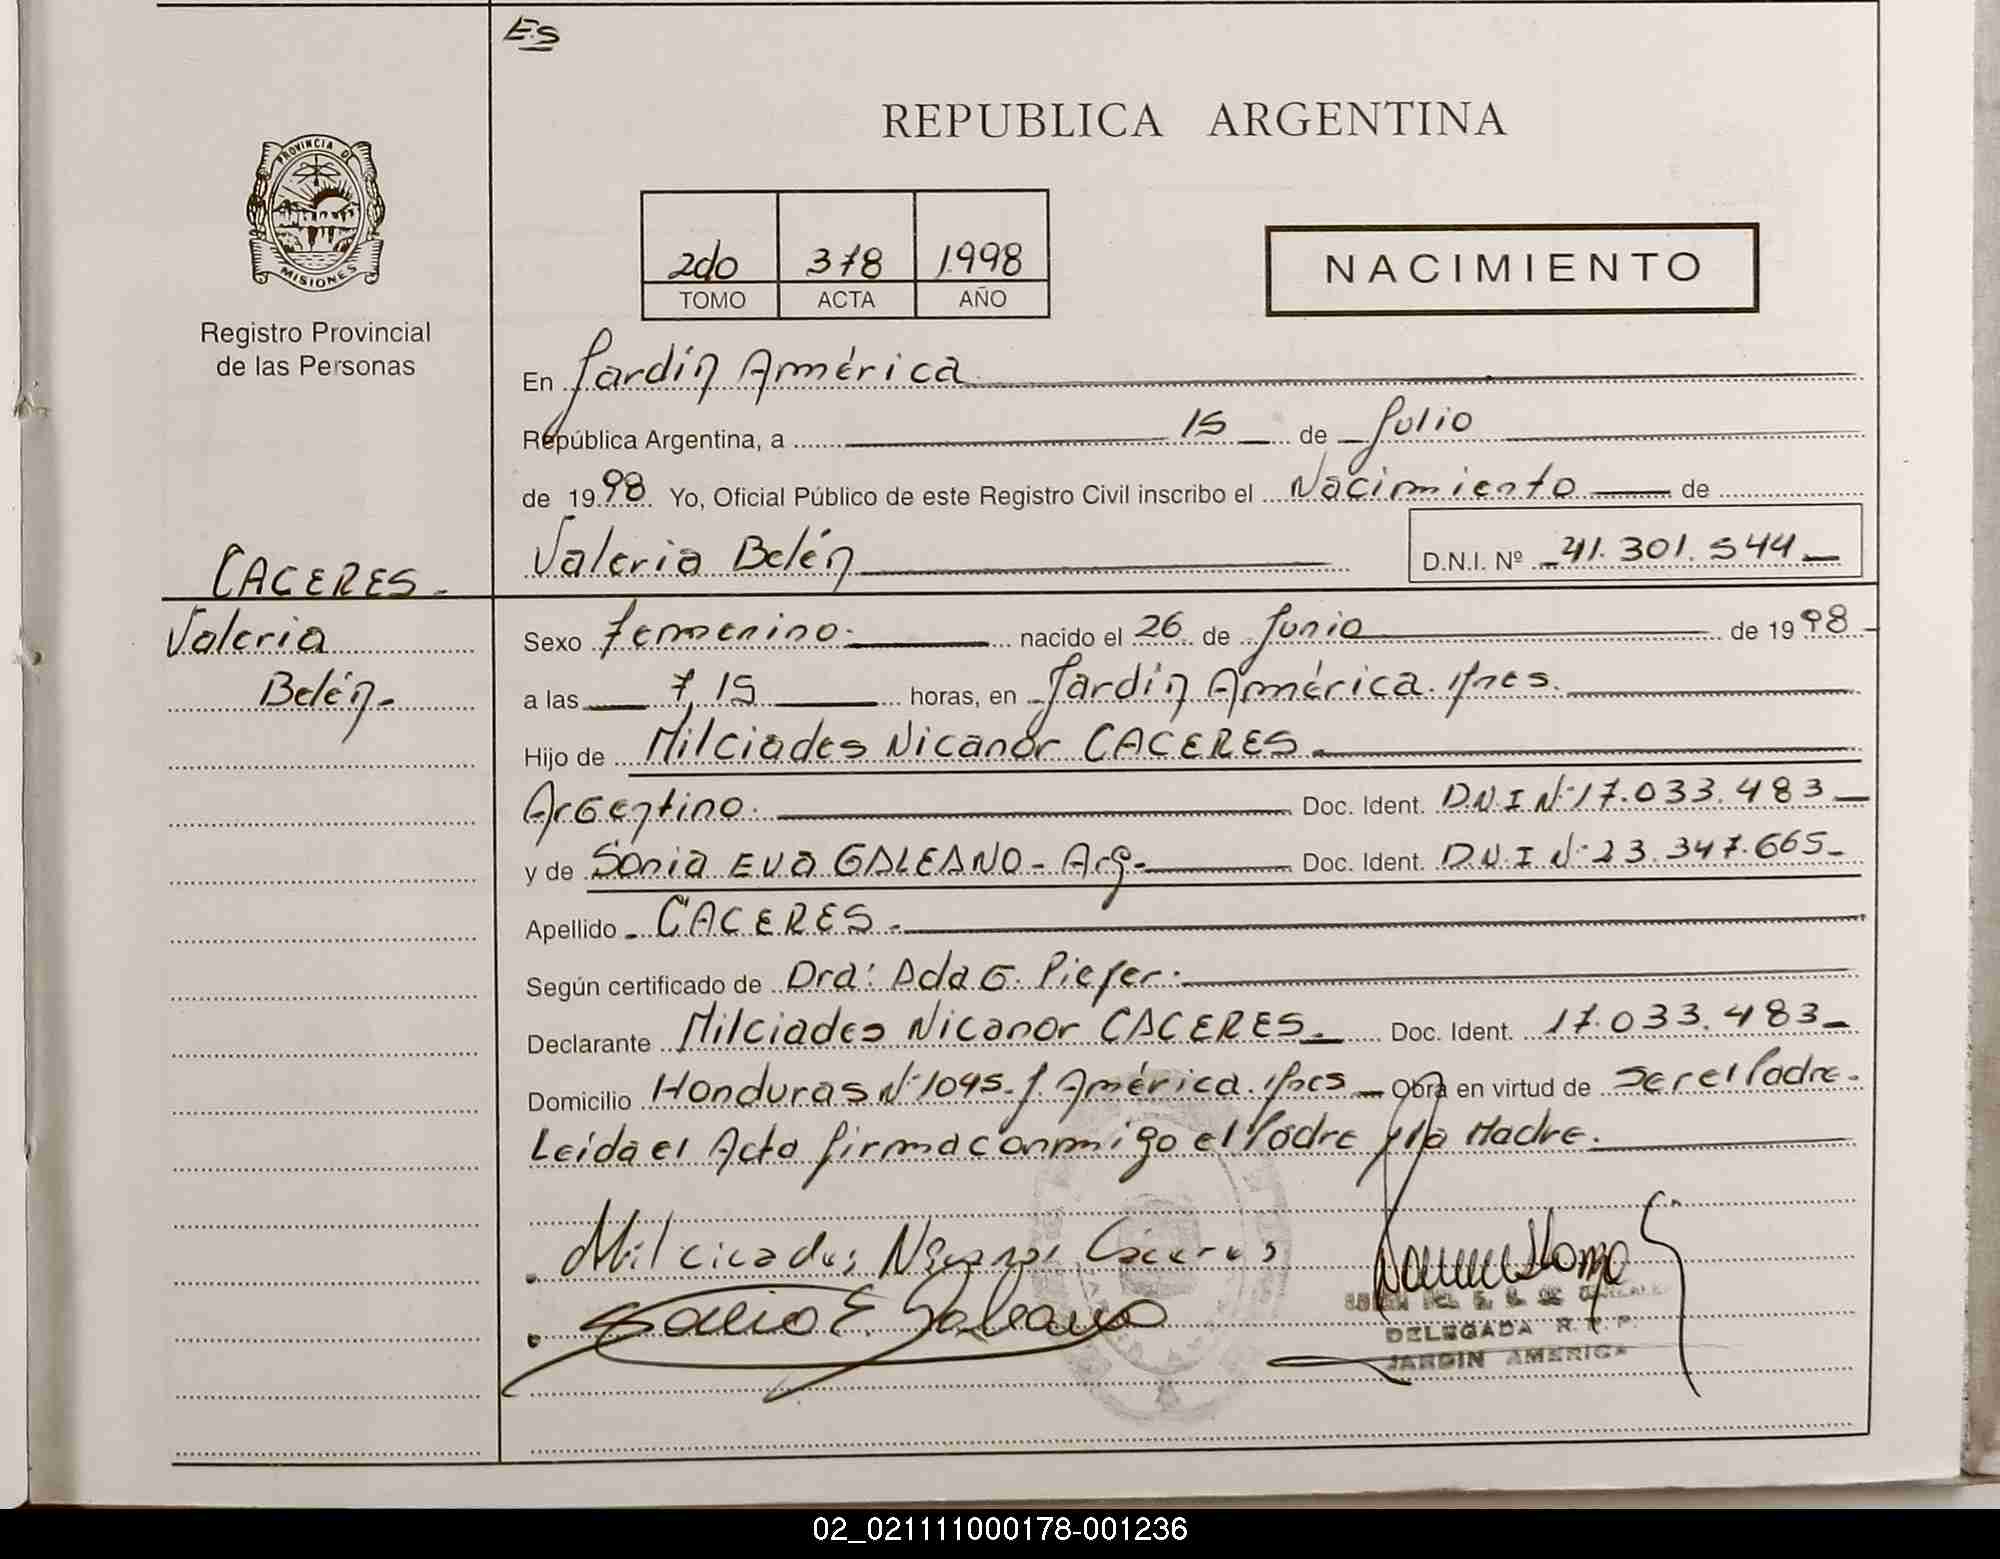 Es
REPUBLICA ARGENTINA
PROVINCIA DE
MISIONES
Registro Provincial
de las Personas
2do 378 1998
TOMO ACTA AÑO
NACIMIENTO
En Jardín América
República Argentina, a 15 de Julio
de 1998 Yo, Oficial Público de este Registro Civil inscribo el Nacimiento de
Valeria Belén D.N.I. Nº 41.301.544
CACERES
Valeria
Belén
Sexo Femenino. nacido el 26 de Junio de 1998
a las 7,15 horas, en Jardín América. Mnes.
Hijo de Milciades Nicanor CACERES
Argentino. Doc. Ident. DNI Nº 17.033.483
y de Sonia Eva GALEANO - Arg. Doc. Ident. D.N.I Nº 23.347.665
Apellido CACERES
Según certificado de Dra: Ada G. Piefer.
Declarante Milciades Nicanor CACERES Doc. Ident. 17.033.483
Domicilio Honduras Nº 1095. J. América. Mnes Obra en virtud de Ser el Padre.
Leída el Acta firma conmigo el Padre y la Madre.
Milciades Nicanor Caceres
Sonia E. Galeano
DELEGADA R. P. P.
JARDIN AMERICA
02_021111000178-001236